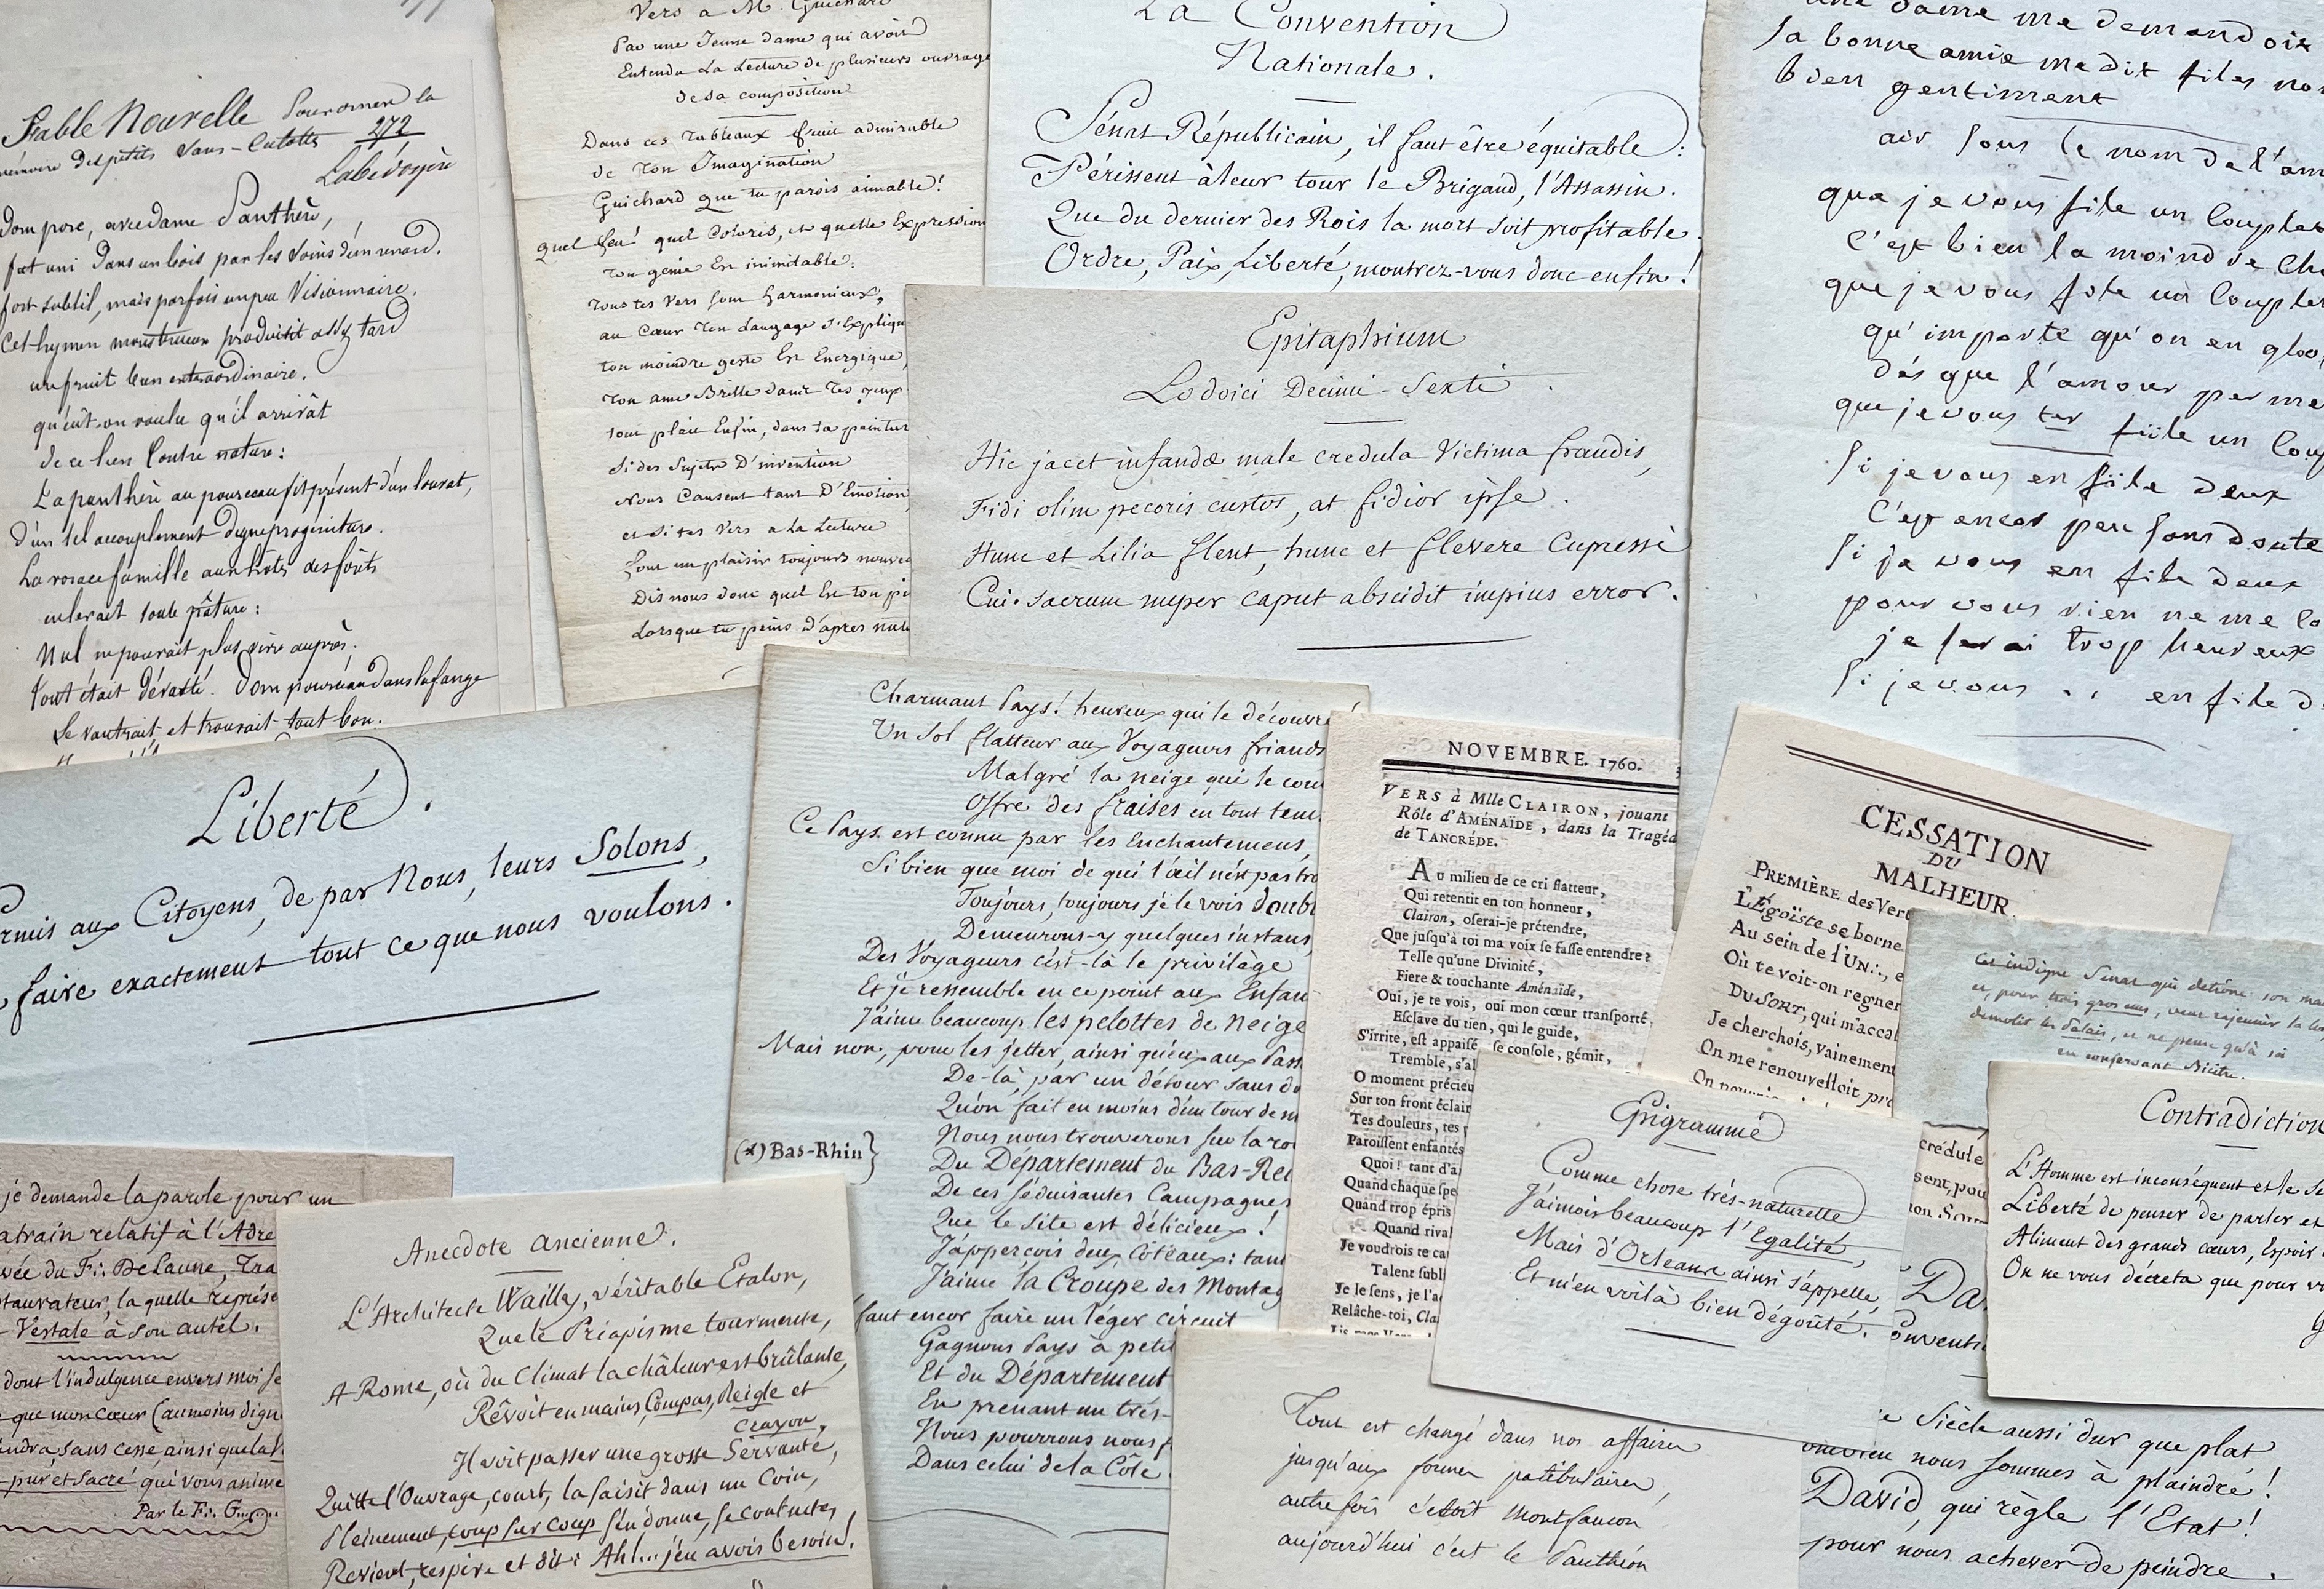 Fable Nouvelle Pour orner la
mémoire des petits Sans-Culottes 272
Labédoyère
Dom porc, avec dame Panthère,
fut uni dans un bois par les soins d'un renard.
fort subtil, mais parfois un peu Visionnaire.
Cet hymen monstrueux produisit assez tard
un fruit bien extraordinaire.
qu'eût-on voulu qu'il arrivât
de ce lien Contre nature:
La panthère au pourceau fit présent d'un
d'un tel accouplement digne progéniture.
La vorace famille aux hôtes des forêts
enlevait toute pâture:
Nul ne pouvait plus vivre auprès.
tout était dévasté. Dom pourceau dans la fange
se vautrait, et trouvait tout bon.
Vers à M. Guichard
Par une Jeune dame qui avoit
Entendu La Lecture de plusieurs ouvrage
de sa composition
Dans ces Tableaux fruit admirable
de Ton Imagination
Guichard que tu parois aimable!
quel feu! quel Coloris, et quelle Expression
Ton génie Est inimitable:
Tous tes Vers sont harmonieux,
au Cœur Ton Langage s'Expliqu
ton moindre geste Est Energique,
Ton ame Brille dans Tes yeux
tout plait Enfin, dans ta peintur
Si des Sujets D'invention
Nous Causent tant D'Emotion
et Si tes Vers a La Lecture
font un plaisir toujours nouve
Dis nous donc quel Est ton pi
Lorsque tu peins D'après natu
La Convention
Nationale.
Sénat Républicain, il faut être équitable:
Périssent à leur tour le Brigand, l'Assassin.
Que du dernier des Rois la mort soit profitable.
Ordre, Paix, Liberté, montrez-vous donc enfin!
une dame me demandoit
sa bonne amie me dit files nos
bien gentiment
air sous le nom de l'am
que je vous file un Couplet
C'est bien la moindre Cho
que je vous file un Couplet
qu' importe qu'on en glos
dés que l'amour perme
que je vous ter file un Coup
Si je vous en file deux
C'est encor peu sans doute
Si je vous en file deux
pour vous rien ne me Co
je serai trop heureux
Si je vous .. en file d
Epitaphium
Lodoici Decimi-Sexti.
Hic jacet infandæ male credula Victima fraudis,
Fidi olim pecoris custos, at fidior ipse.
Hunc et Lilia flent, hunc et flevere Cupressi
Cui sacrum nuper caput abscidit impius error.
Liberté.
rmis aux Citoyens, de par Nous, leurs Solons,
faire exactement tout ce que nous voulons.
Charmant Pays! heureux qui le découvre!
Un Sol flatteur aux Voyageurs friands
Malgré la neige qui le couv
Offre des fraises en tout tem
Ce Pays est connu par les Enchantemens,
Si bien que moi de qui l'œil n'est pas tro
Toujours, toujours je le vois doubl
Demeurons-y quelques instans,
Des Voyageurs c'est-là le privilège
Et je ressemble en ce point aux Enfan
J'aime beaucoup les pelottes de neige
Mais non, pour les jetter, ainsi qu'eux aux Pass
De-là, par un détour sans do
Qu'on fait en moins d'un tour de m
Nous nous trouverons sur la ro
(*) Bas-Rhin}
Du Département du Bas-Rei
De ces séduisantes Campagnes
Que le site est délicieux!
J'apperçois deux Côteaux: tan
J'aime la Croupe des Montag
faut encor faire un léger circuit
Gagnons Pays à petit
Et du Département
En prenant un très-
Nous pourrons nous
Dans celui de la Côte
NOVEMBRE. 1760.
VERS à Mlle CLAIRON, jouant
Rôle d'AMÉNAÏDE, dans la Tragéd
de TANCRÉDE.
Au milieu de ce cri flatteur,
Qui retentit en ton honneur,
Clairon, oserai-je prétendre,
Que jusqu'à toi ma voix se fasse entendre?
Telle qu'une Divinité,
Fiere & touchante Aménaïde,
Oui, je te vois, oui mon cœur transporté,
Esclave du tien, qui le guide,
S'irrite, est appaisé, se console, gémit,
Tremble, s'al
O moment précieu
Sur ton front éclair
Tes douleurs, tes
Paroissent enfantés
Quoi! tant d'a
Quand chaque spe
Quand trop épris
Quand rival
Je voudrois te ca
Talent subl
Je le sens, je l'a
Relâche-toi, Cla
CESSATION
DU
MALHEUR.
PREMIÈRE des Vert
L'Égoïste se borne
Au sein de l'UN∴, e
Où te voit-on regner
Du SORT, qui m'accal
Je cherchois, vainement
On me renouvelloit pro
Cet indigne Senat qui detrône son ma
et, pour trois gros sous, veut rajeunir la
demolit les Palais, et ne pense qu'à soi
en conservant Bicêtre.
Epigramme
Comme chose très-naturelle
J'aimois beaucoup l'Egalité,
Mais d'Orleans ainsi s'appelle,
Et m'en voilà bien dégoûté.
crédule
sent, pou
Da
onventi
Contradiction
L'Homme est inconséquent et le Se
Liberté de penser de parler et
Aliment des grands cœurs, Espoir
On ne vous décreta que pour v
je demande la parole pour un
atrain relatif à l'Adre
vée du F∴ DeLaune, Tra
taurateur, la quelle représe
Vestale à son autel.
dont l'indulgence envers moi se
que mon Cœur (au moins dign
indra, sans cesse, ainsi que la
pur et sacré qui vous anime
Par le F∴ G.....
Anecdote ancienne.
L'Architecte Wailly, véritable Etalon,
Que le Priapisme tourmente,
A Rome, où du Climat la châleur est brûlante,
Rêvoit en mains, Compas, Reigle et
Crayon,
Il voit passer une grosse Servante,
Quitte l'Ouvrage, court, la saisit dans un Coin,
Pleinement, coup sur coup s'en donne, se contente,
Revient, respire et dit: Ah!... j'en avois besoin!
Tout est changé dans nos affaires
jusqu'aux formes patibulaires,
autrefois c'etoit Montfaucon
aujourd'hui c'est le Panthéon
Siècle aussi dur que plat
combien nous sommes à plaindre!
David, qui règle l'Etat!
pour nous achever de peindre.